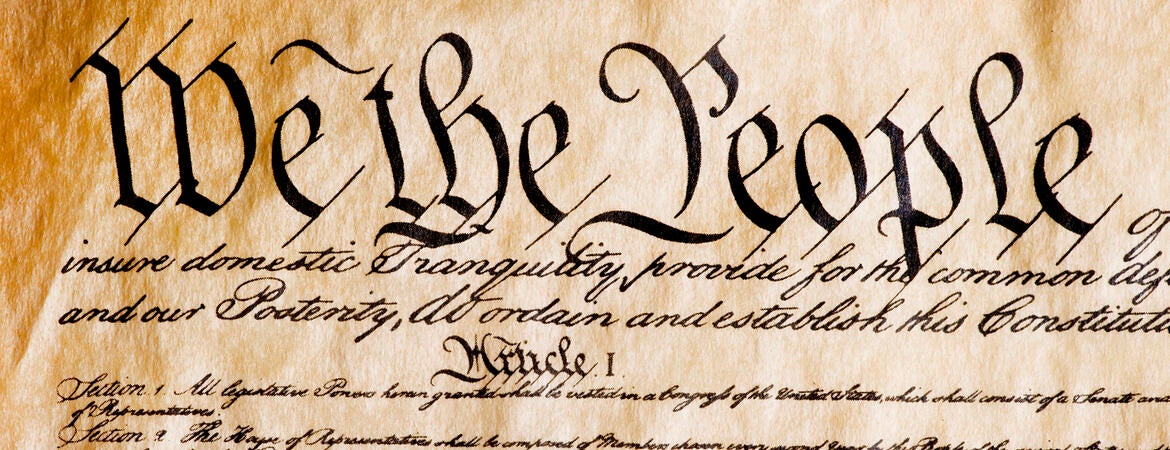 We the People of
insure domestic Tranquility, provide for the common def
and our Posterity, do ordain and establish this Constituti
Article. I.
Section. 1 All legislative Powers herein granted shall be vested in a Congress of the United States, which shall consist of a Senate and
of Representatives.
Section 2 The House of Representatives shall be composed of Members chosen every second Year by the People of the several